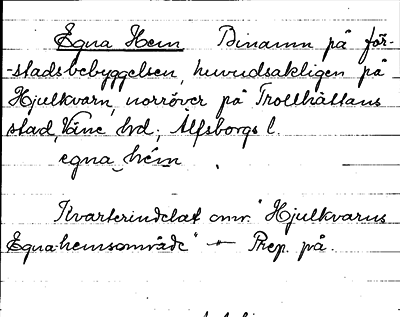 Egna Hem Binamn på för-
-stadsbebyggelsen, huvudsakligen på
Hjulkvarn, norröver på Trollhättans
stad, Väne hd; Älfsborgs l.
egna hém
Kvarterindelat omr. "Hjulkvarns
Egnahemsområde" — Prep. på.